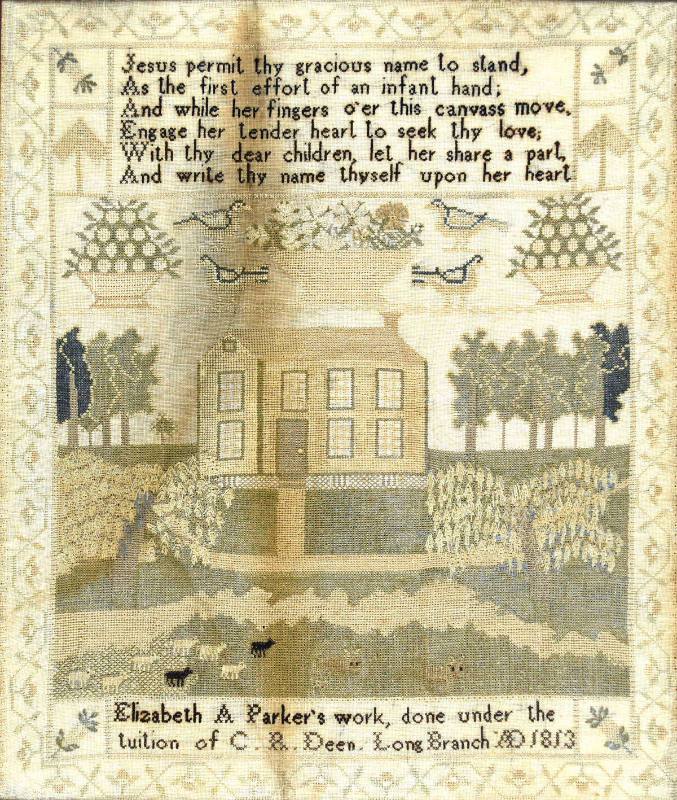 Jesus permit thy gracious name to stand,
As the first effort of an infant hand;
And while her fingers o'er this canvass move,
Engage her tender heart to seek thy love;
With thy dear children, let her share a part,
And write thy name thyself upon her heart
Elizabeth A Parker's work, done under the
tuition of C. A. Deen. Long Branch AD 1813